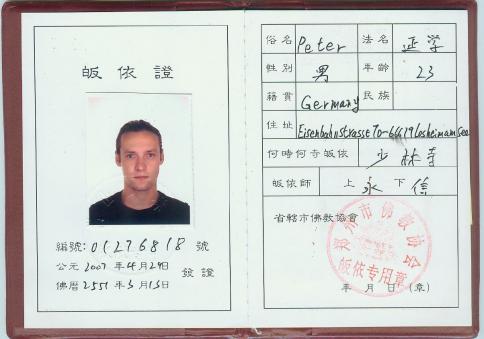 皈依證
編號:01276818號
公元2007年4月29日
佛曆2551年3月13日
簽證
俗名 Peter 法名 延学
性別 男 年齡 23
籍貫 Germany 民族
住址 Eisenbahnstrasse 70-66679 Losheim am See
何時何寺皈依 少林寺
皈依師 上永下信
省轄市佛教協會
郑州市佛教协会
皈依专用章
年 月 日 (章)